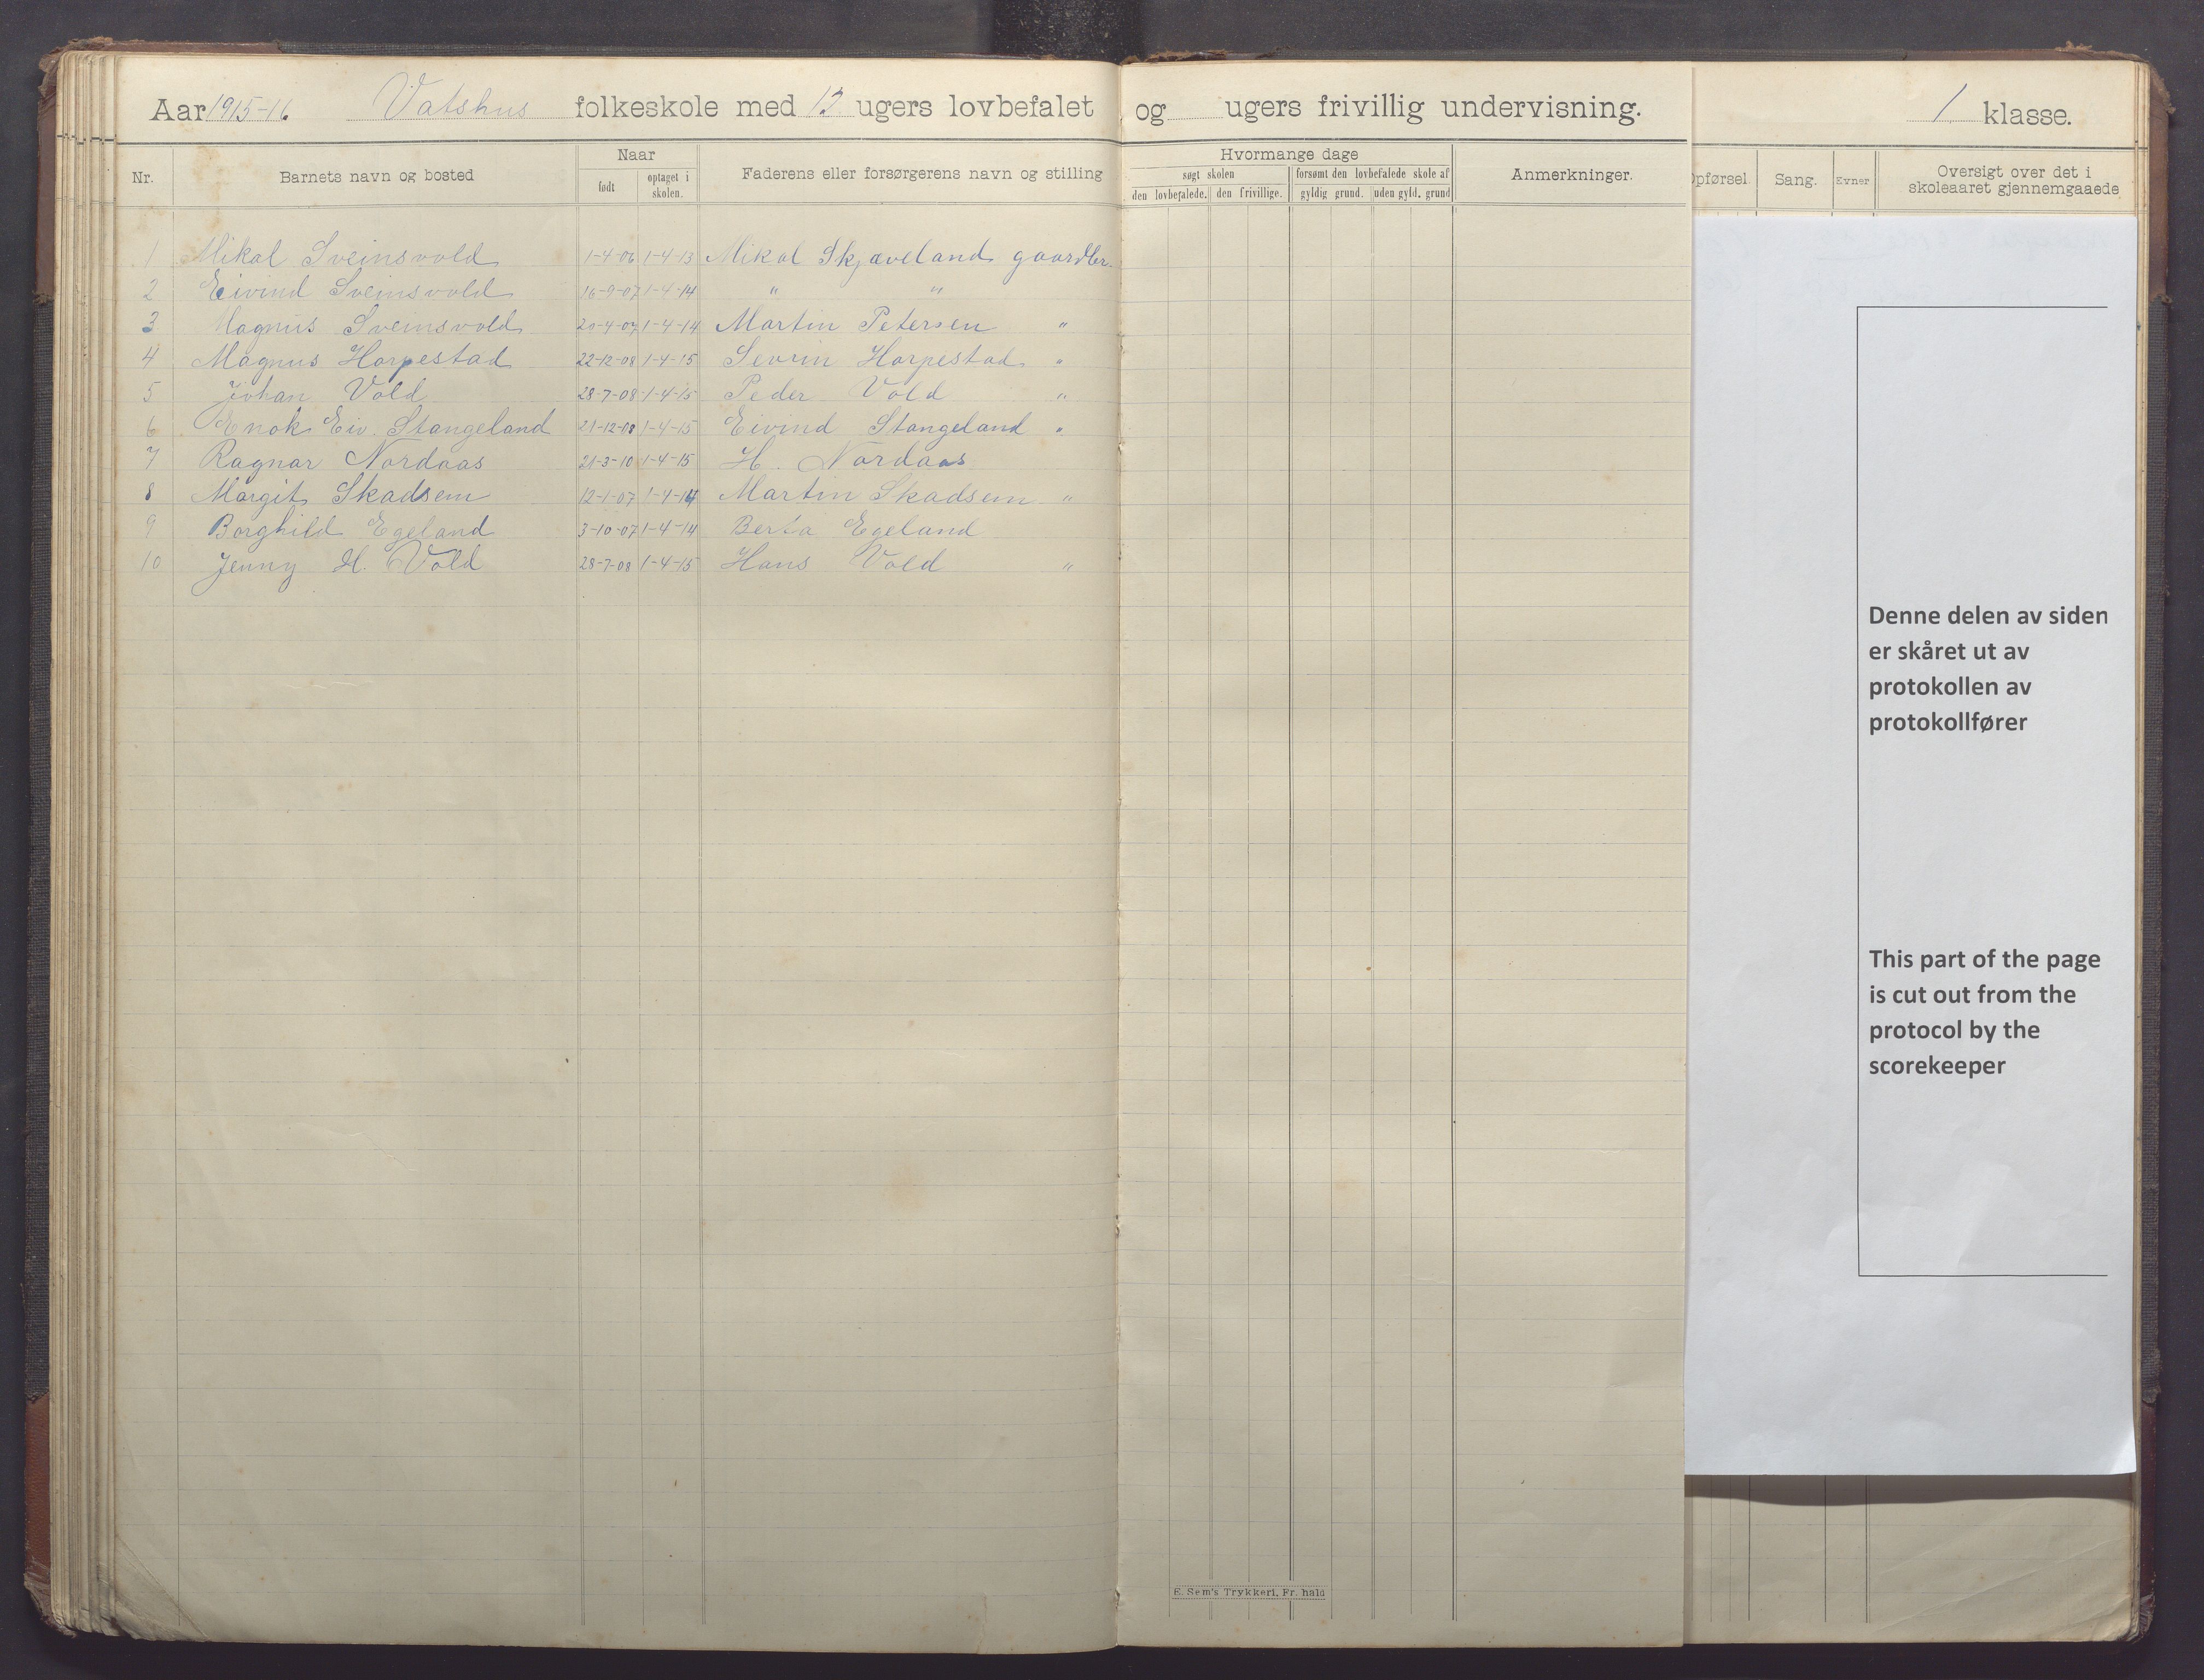 Aar 1915-16. Vatshus folkeskole med 12 ugers lovbefalet og ugers frivillig undervisning. 1 klasse.
Nr. Barnets navn og bosted Naar født optaget i skolen. Faderens eller forsørgerens navn og stilling Hvormange dage søgt skolen den lovbefalede. den frivillige. forsømt den lovbefalede skole af gyldig grund. uden gyld. grund Anmerkninger. Opførsel. Sang. Evner Oversigt over det i skoleaaret gjennemgaaede
1 Mikal Sveinsvold 1-4-06 1-4-13 Mikal Skjæveland gaardbr.
2 Eivind Sveinsvold 16-9-07 1-4-14 " "
3 Magnus Sveinsvold 20-4-07 1-4-14 Martin Petersen "
4 Magnus Harpestad 22-12-08 1-4-15 Sevrin Harpestad "
5 Johan Vold 28-7-08 1-4-15 Peder Vold "
6 Enok Eiv. Stangeland 21-12-08 1-4-15 Eivind Stangeland "
7 Ragnar Nordaas 21-3-10 1-4-15 H. Nordaas
8 Margit Skadsem 12-1-07 1-4-14 Martin Skadsem "
9 Borghild Egeland 3-10-07 1-4-14 Berta Egeland
10 Jenny H. Vold 28-7-08 1-4-15 Hans Vold "
Denne delen av siden
er skåret ut av
protokollen av
protokollfører
This part of the page
is cut out from the
protocol by the
scorekeeper
E. Sem's Trykkeri, Fr. hald